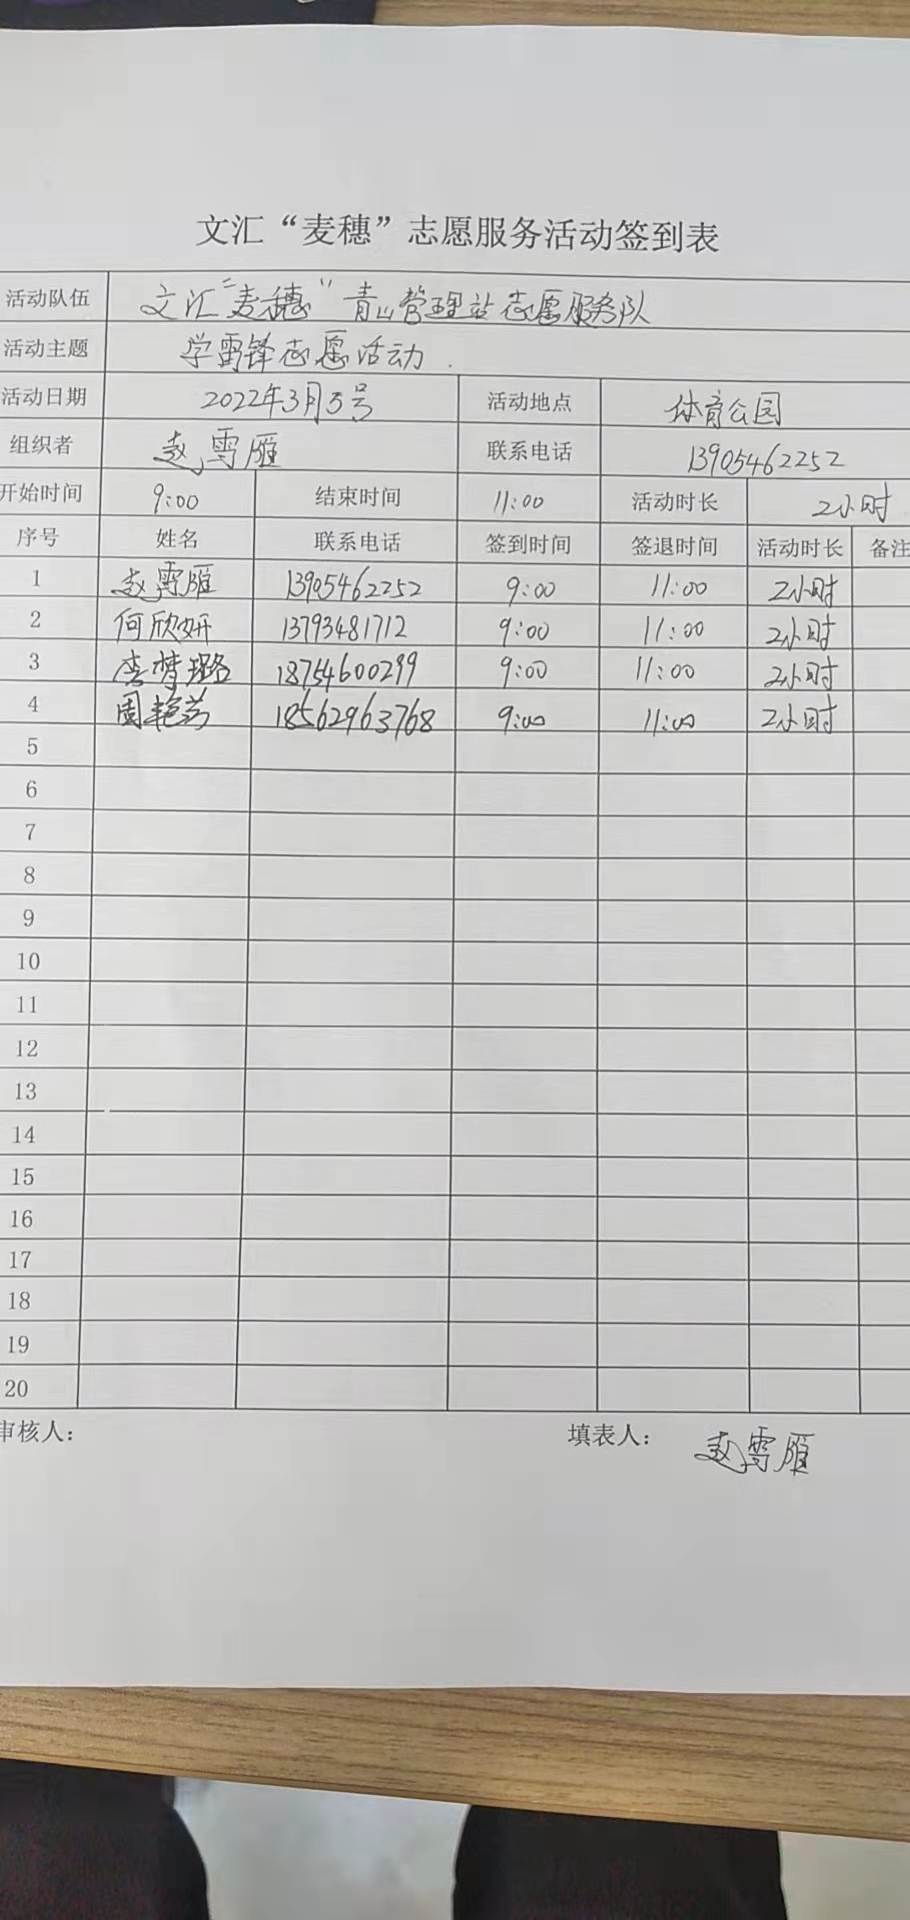 文汇“麦穗”志愿服务活动签到表
活动队伍 文汇“麦穗”青山管理站志愿服务队
活动主题 学雷锋志愿活动.
活动日期 2022年3月5号 活动地点 体育公园
组织者 赵雪雁 联系电话 13905462252
开始时间 9:00 结束时间 11:00 活动时长 2小时
序号 姓名 联系电话 签到时间 签退时间 活动时长 备注
1 赵雪雁 13905462252 9:00 11:00 2小时
2 何欣妍 13793481712 9:00 11:00 2小时
3 李梦璐 18754600299 9:00 11:00 2小时
4 周艳 18562963768 9:00 11:00 2小时
5
6
7
8
9
10
11
12
13
14
15
16
17
18
19
20
审核人： 填表人： 赵雪雁